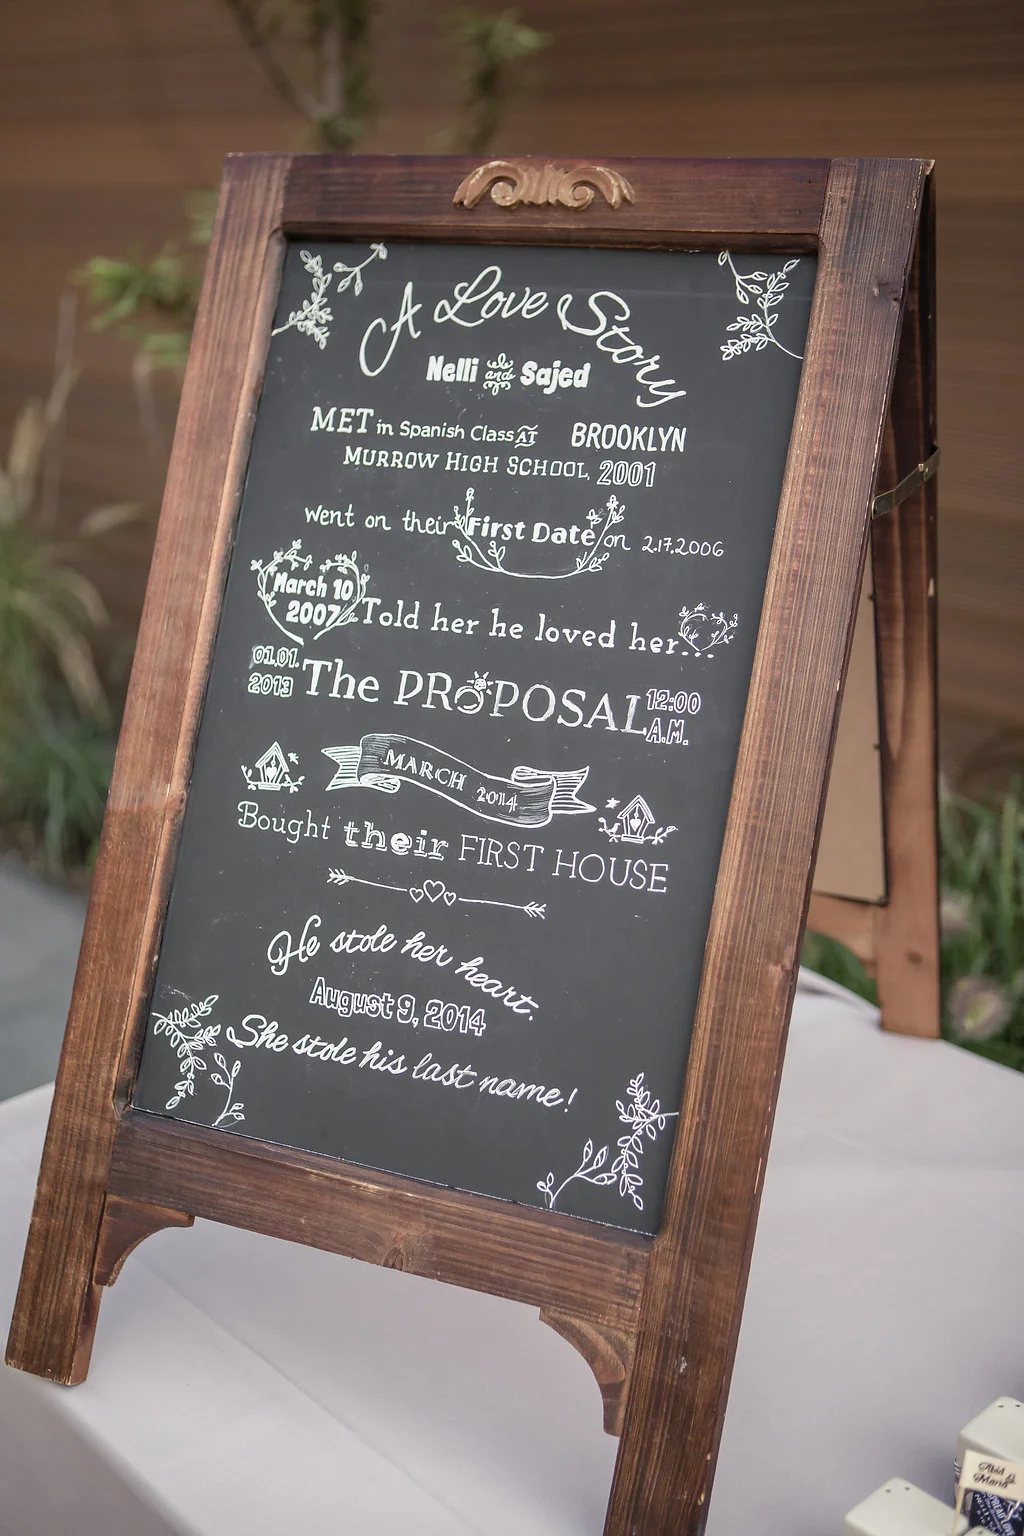 A Love Story
Nelli and Sajed
MET in Spanish Class AT BROOKLYN
MURROW HIGH SCHOOL 2001
went on their First Date on 2.17.2006
March 10
2007 Told her he loved her...
01.01.
2013 The PROPOSAL 12:00
A.M.
MARCH 2014
Bought their FIRST HOUSE
He stole her heart.
August 9, 2014
She stole his last name!